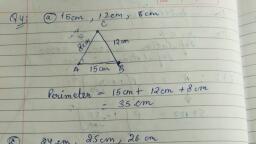 Q4: (a) 15cm, 12cm, 8cm
C
8cm 12cm
A 15cm B
Perimeter = 15cm + 12cm + 8cm
= 35 cm
24 cm, 25cm, 26 cm